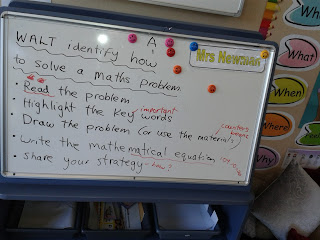 WALT identify how
to solve a maths problem.
Mrs Newman
• Read the problem
• Highlight the key words
important
• Draw the problem (or use the materials)
counters
• Write the mathematical equation
• share your strategy - how?
What
When
Where
Why